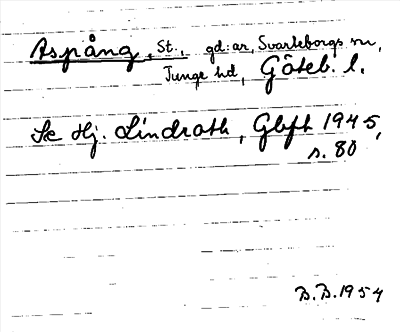 Aspång, St., gd:ar, Svarteborgs sn,
Tunge hd, Göteb. l.
Se Hj. Lindroth, Gbfh 1945,
s. 80
B.B. 1954